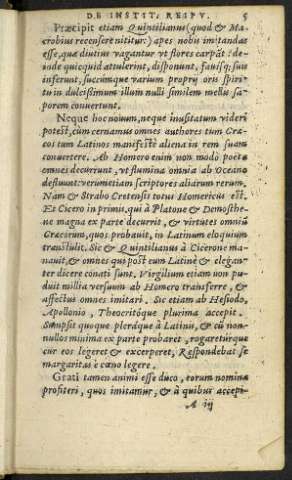 DE INSTIT. RESPV. 5
Præcipit etiam Quintilianus (quod & Ma-
crobius recensere nititur) apes nobis imitandas
esse, quæ diutius vagantur vt flores carpāt: de-
inde quicquid attulerint, disponunt, fauisq; suis
inferunt, succumque varium propry oris spiri-
tu in dulcissimum illum nulli similem mellu sa-
porem conuertunt.
Neque hoc nouum, neque inusitatum videri
potest, cùm cernamus omnes authores tum Græ-
cos tum Latinos manifestè aliena in rem suam
conuertere. Ab Homero enim non modò poetæ
omnes decurrunt, vt flumina omnia ab Oceano
defluunt: verumetiam scriptores aliarum rerum,
Nam & Strabo Cretensis totus Homericus est.
Et Cicero in primis, qui à Platone & Demosthe-
ne magna ex parte decurrit, & virtutes omniū
Græcorum, quos probauit, in Latinum eloquium
transtulit. Sic & Quintilianus à Cicerone ma-
nauit, & omnes qui post eum Latinè & elegan-
ter dicere conati sunt. Virgilium etiam non pu-
duit millia versuum ab Homero transferre, &
affectus omnes imitari. Sic etiam ab Hesiodo,
Apollonio, Theocritóque plurima accepit.
Sumpsit quoque pleráque à Latinis, & cū non-
nullos minima ex parte probaret, rogareturque
cur eos legeret & excerperet, Respondebat se
margaritas è cœno legere.
Grati tamen animi esse duco, eorum nomina
profiteri, quos imitamur, & à quibus accepi-
A iij